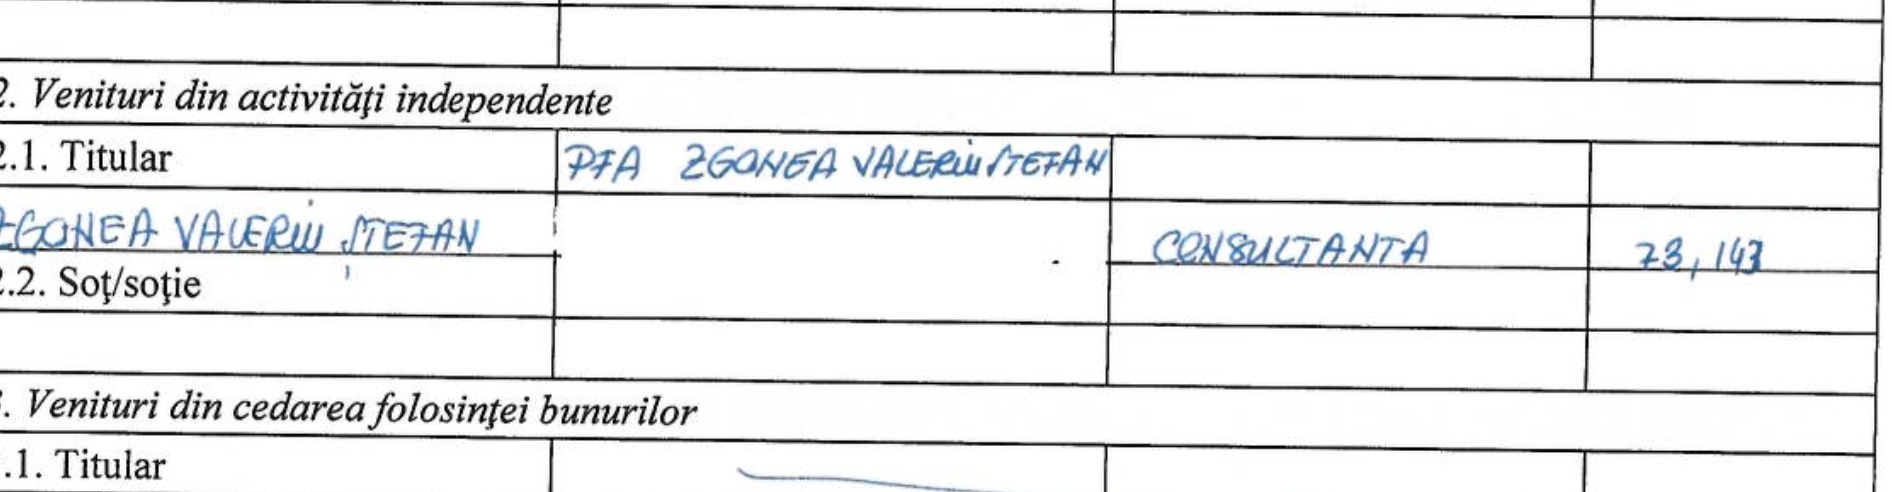 2. Venituri din activităţi independente
2.1. Titular PFA ZGONEA VALERIU STEFAN
ZGONEA VALERIU ŞTEFAN CONSULTANTA 73,143
2.2. Soţ/soţie
. Venituri din cedarea folosinţei bunurilor
.1. Titular